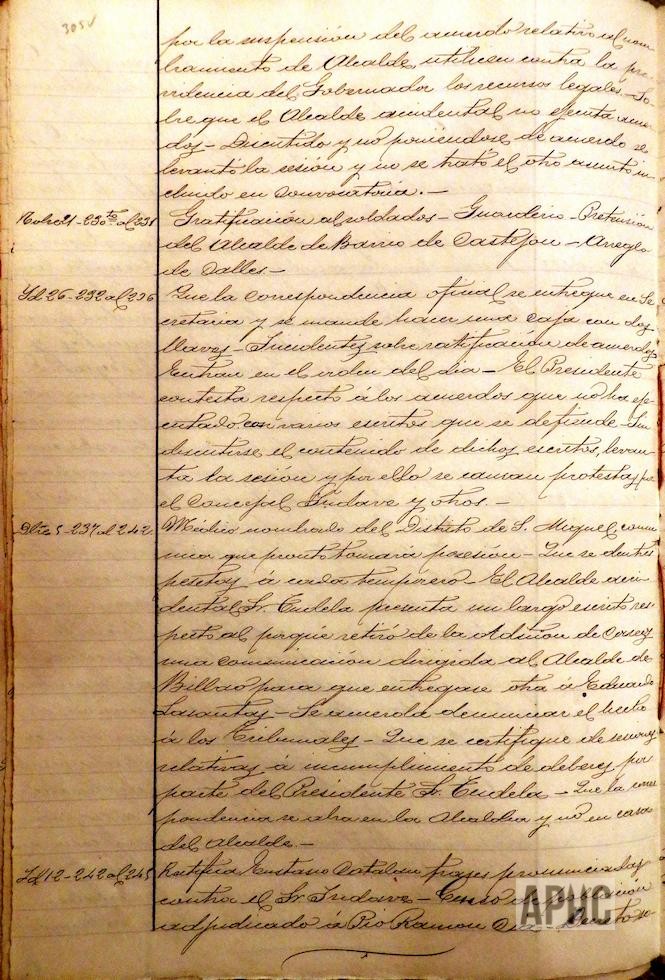 305v
por la suspension del acuerdo relativo al nom-
bramiento de Alcalde, utilicen contra la pro-
videncia del Gobernador los recursos legales - So-
bre que el Alcalde accidental no ejecuta acuer-
dos - Discutido y no poniendose de acuerdo se
levantó la sesión y no se trató el otro asunto in-
cluido en convocatoria. -
21 - 230 al 231
Gratificación a soldados - Guarderio - Pretension
del Alcalde de Barrio de Castejon - Arreglo
de Calles -
Id 26 - 232 al 236
Que la correspondencia oficial se entregue en Se-
cretaria y se mande hacer una caja con dos
llaves - Incidentes sobre ratificación de acuerdos
Entran en el orden del dia - El Presidente
contesta respecto á los acuerdos que no ha eje-
cutado con varios escritos que se defiende - Sin
discutirse el contenido de dichos escritos, levan-
ta la sesión y por ello se causan protestas por
el Concejal Yndave y otros. -
Dbre 5 - 237 al 242
Médico nombrado del Distrito de S. Miguel comu-
nica que pronto tomará posesion - Que se den tres
pesetas á cada temporero - El Alcalde acci-
dental Sr. Tudela presenta un largo escrito res-
pecto al porqué retiró de la Admon de Correos
una comunicación dirigida al Alcalde de
Bilbao para que entregase otra á Eduardo
Lasantas - Se acuerda denunciar el hecho
á los Tribunales - Que se certifique de
relativas á incumplimiento de deberes por
parte del Presidente Sr. Tudela - Que la corres-
pondencia se abra en la Alcaldia y no en casa
del Alcalde. -
Id 12 - 242 al 245
Ratifica Gustavo Catalan frases pronunciadas
contra el Sr. Yndave - Censo de población
adjudicado á Pio Ramon
APHC